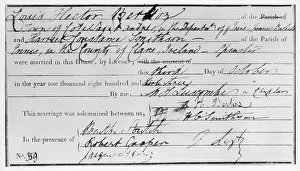 Louis Hector Berlioz of the Parish of
Town of
and Harriet Constance Smithson of the Parish of
Ennis, in the County of Clare Ireland Spinster
were married in this House, by Licence, with the consent of
this third Day of October
in the year one thousand eight hundred and thirty three
By me M. H. Luscombe Chaplain
This marriage was solemnized between us, H. Berlioz
H. C. Smithson
In the presence of
Robert Cooper
Jacques Henry
F. Liszt
No. 89